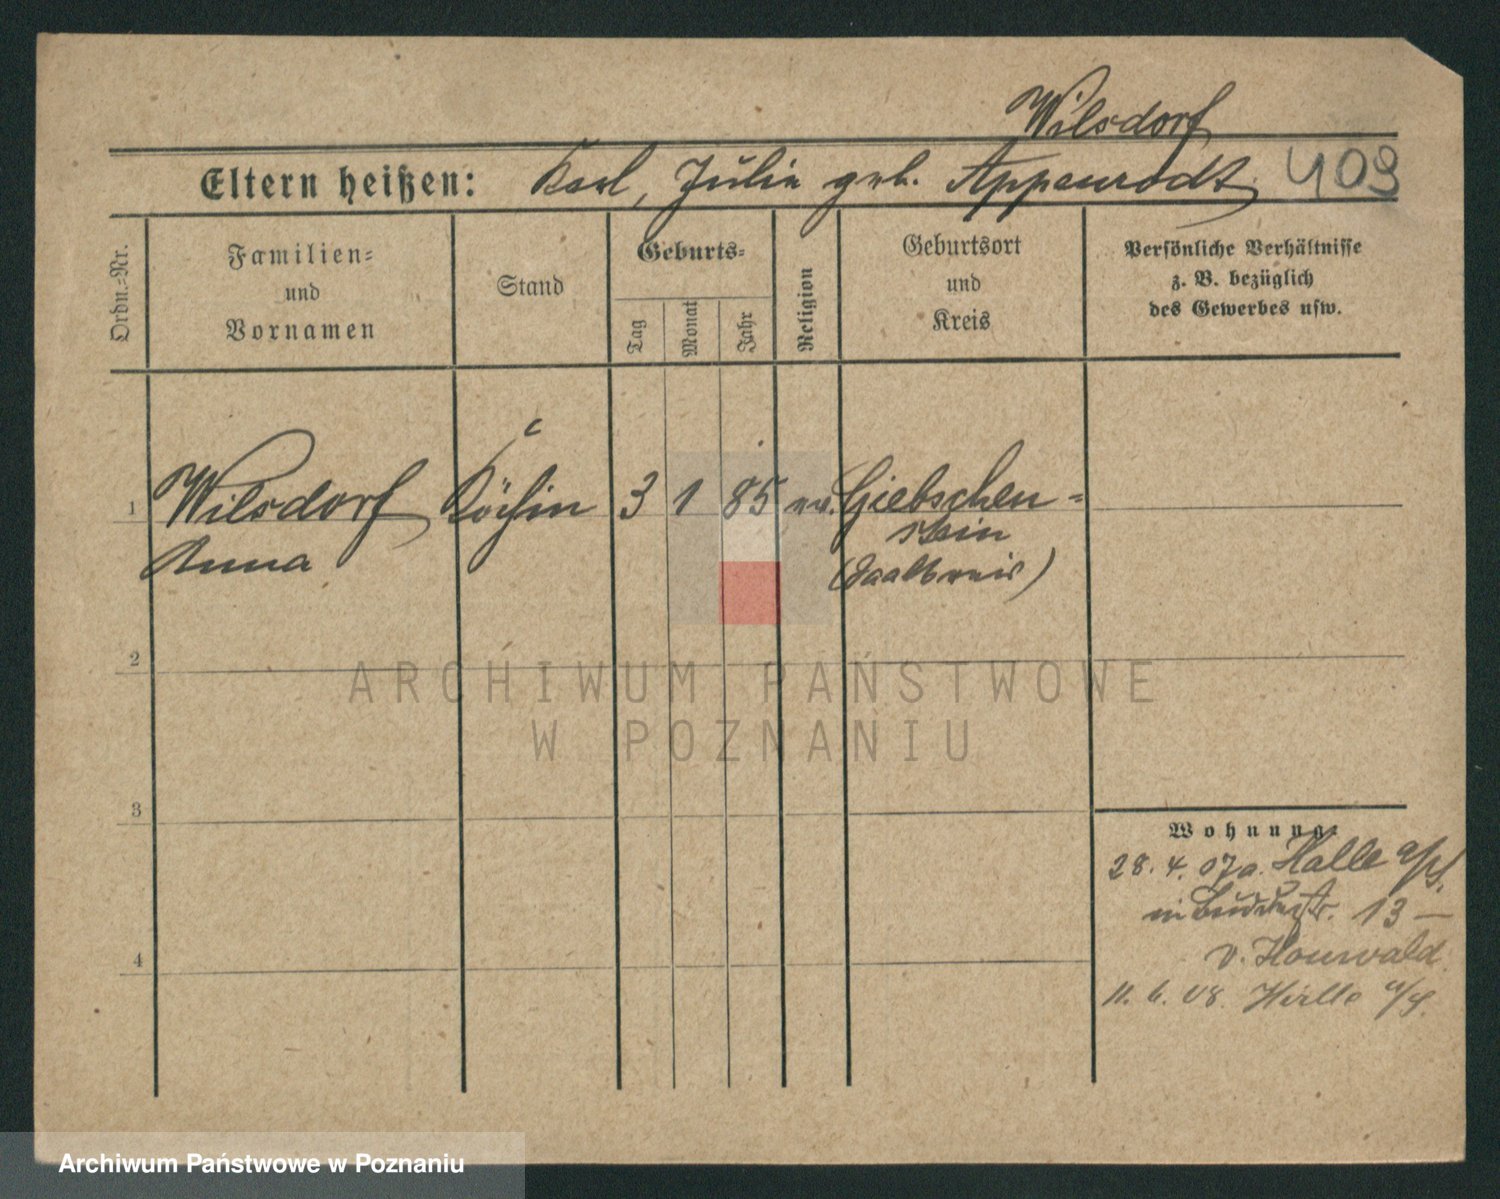 Wilsdorf
Eltern heißen: Karl, Julie geb. Appenrodt 409
Ordn.=Nr.
Familien=
und
Vornamen
Stand
Geburts=
Tag
Monat
Jahr
Religion
Geburtsort
und
Kreis
Persönliche Verhältnisse
z. B. bezüglich
des Gewerbes usw.
1 Wilsdorf Köchin 3 1 85 ev. Giebichen=
Anna
stein
(Saalkreis)
2
3
4
Wohnung:
28. 4. 07 a. Halle a/S.
13 —
v. Houwald
11. 6. 08. Halle a/S.
ARCHIWUM PAŃSTWOWE
W POZNANIU
Archiwum Państwowe w Poznaniu